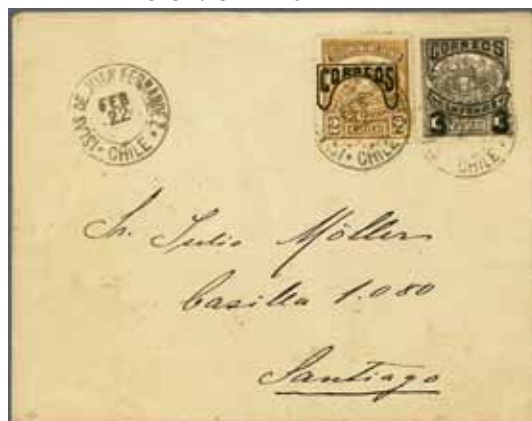 ISLAS DE JUAN FERNANDEZ
FEB
22
* CHILE *
CORREOS
2 2
CORREOS
3 3
* CHILE
CHILE
Sr. Julio Möller
Casilla 1.080
Santiago